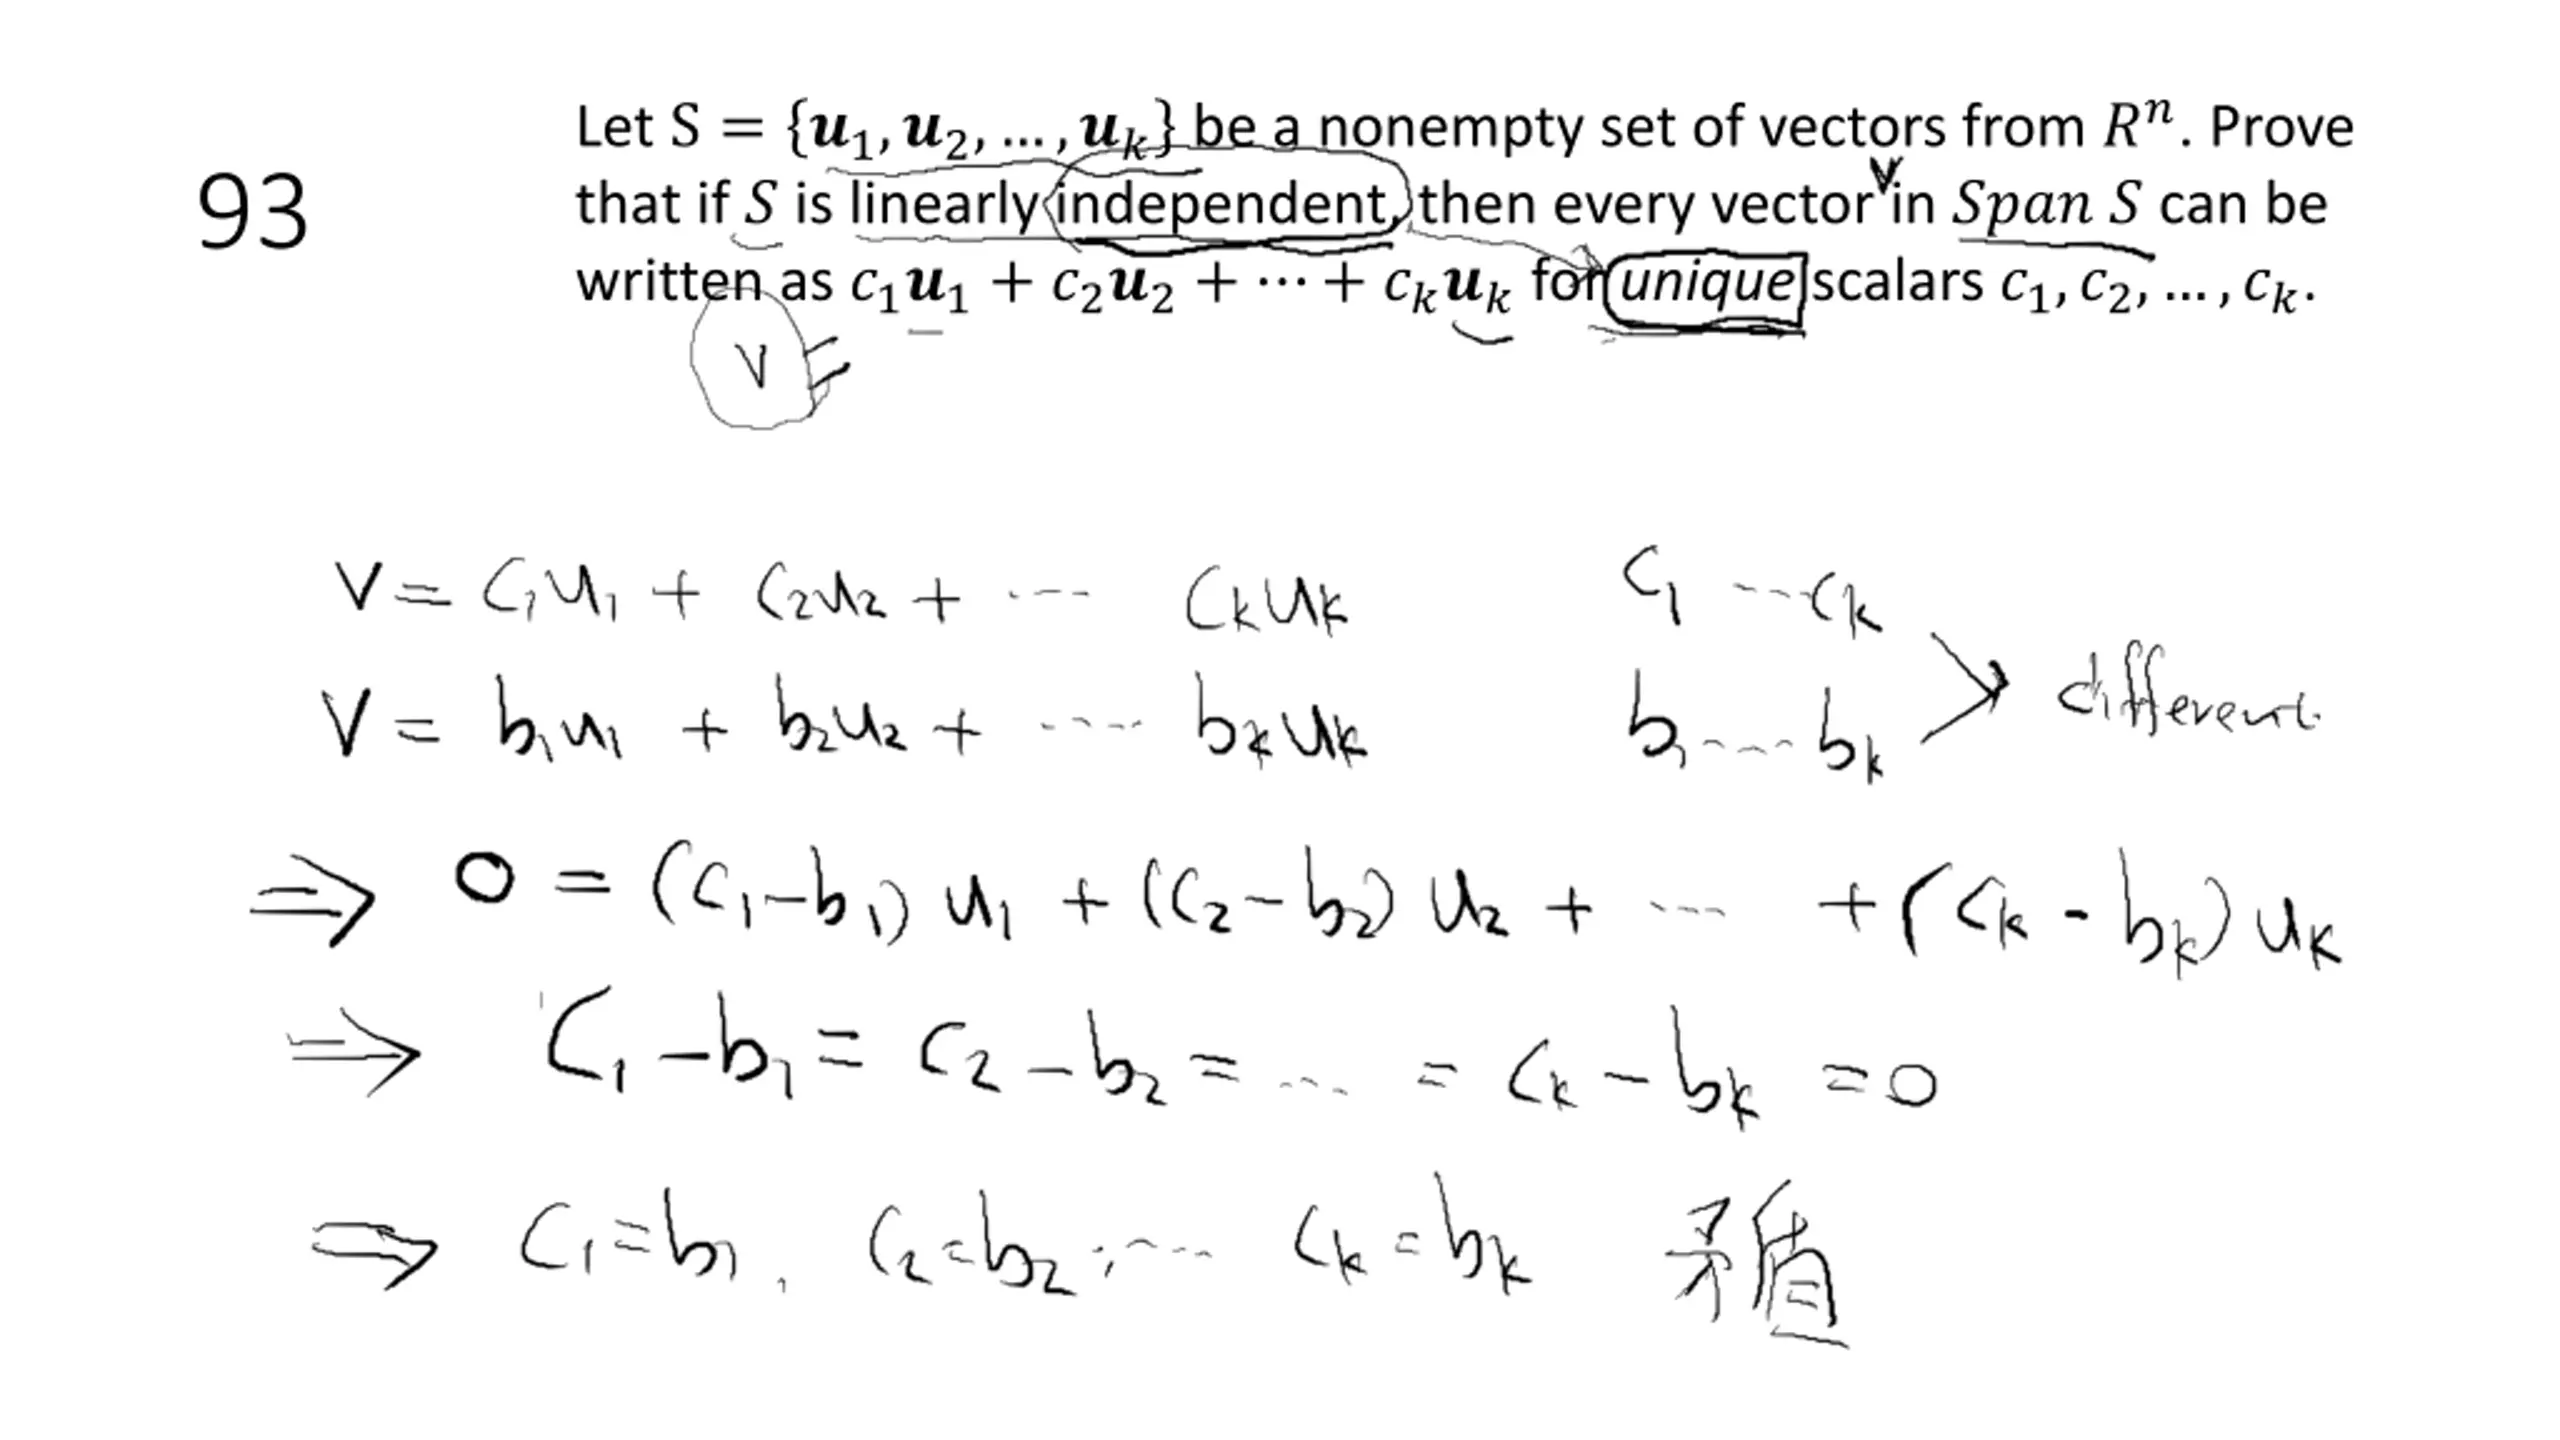 93
Let S = {u₁, u₂, … , uₖ} be a nonempty set of vectors from Rⁿ. Prove
that if S is linearly independent, then every vector v in Span S can be
written as c₁u₁ + c₂u₂ + ⋯ + cₖuₖ for unique scalars c₁, c₂, … , cₖ.
V =
V = c₁u₁ + c₂u₂ + ---- cₖuₖ
c₁ ---- cₖ
V = b₁u₁ + b₂u₂ + ---- bₖuₖ
b₁ ---- bₖ
> different
⇒ 0 = (c₁-b₁) u₁ + (c₂-b₂) u₂ + --- + (cₖ - bₖ) uₖ
⇒ c₁ - b₁ = c₂ - b₂ = --- = cₖ - bₖ = 0
⇒ c₁ = b₁, c₂ = b₂, ---- cₖ = bₖ 矛盾